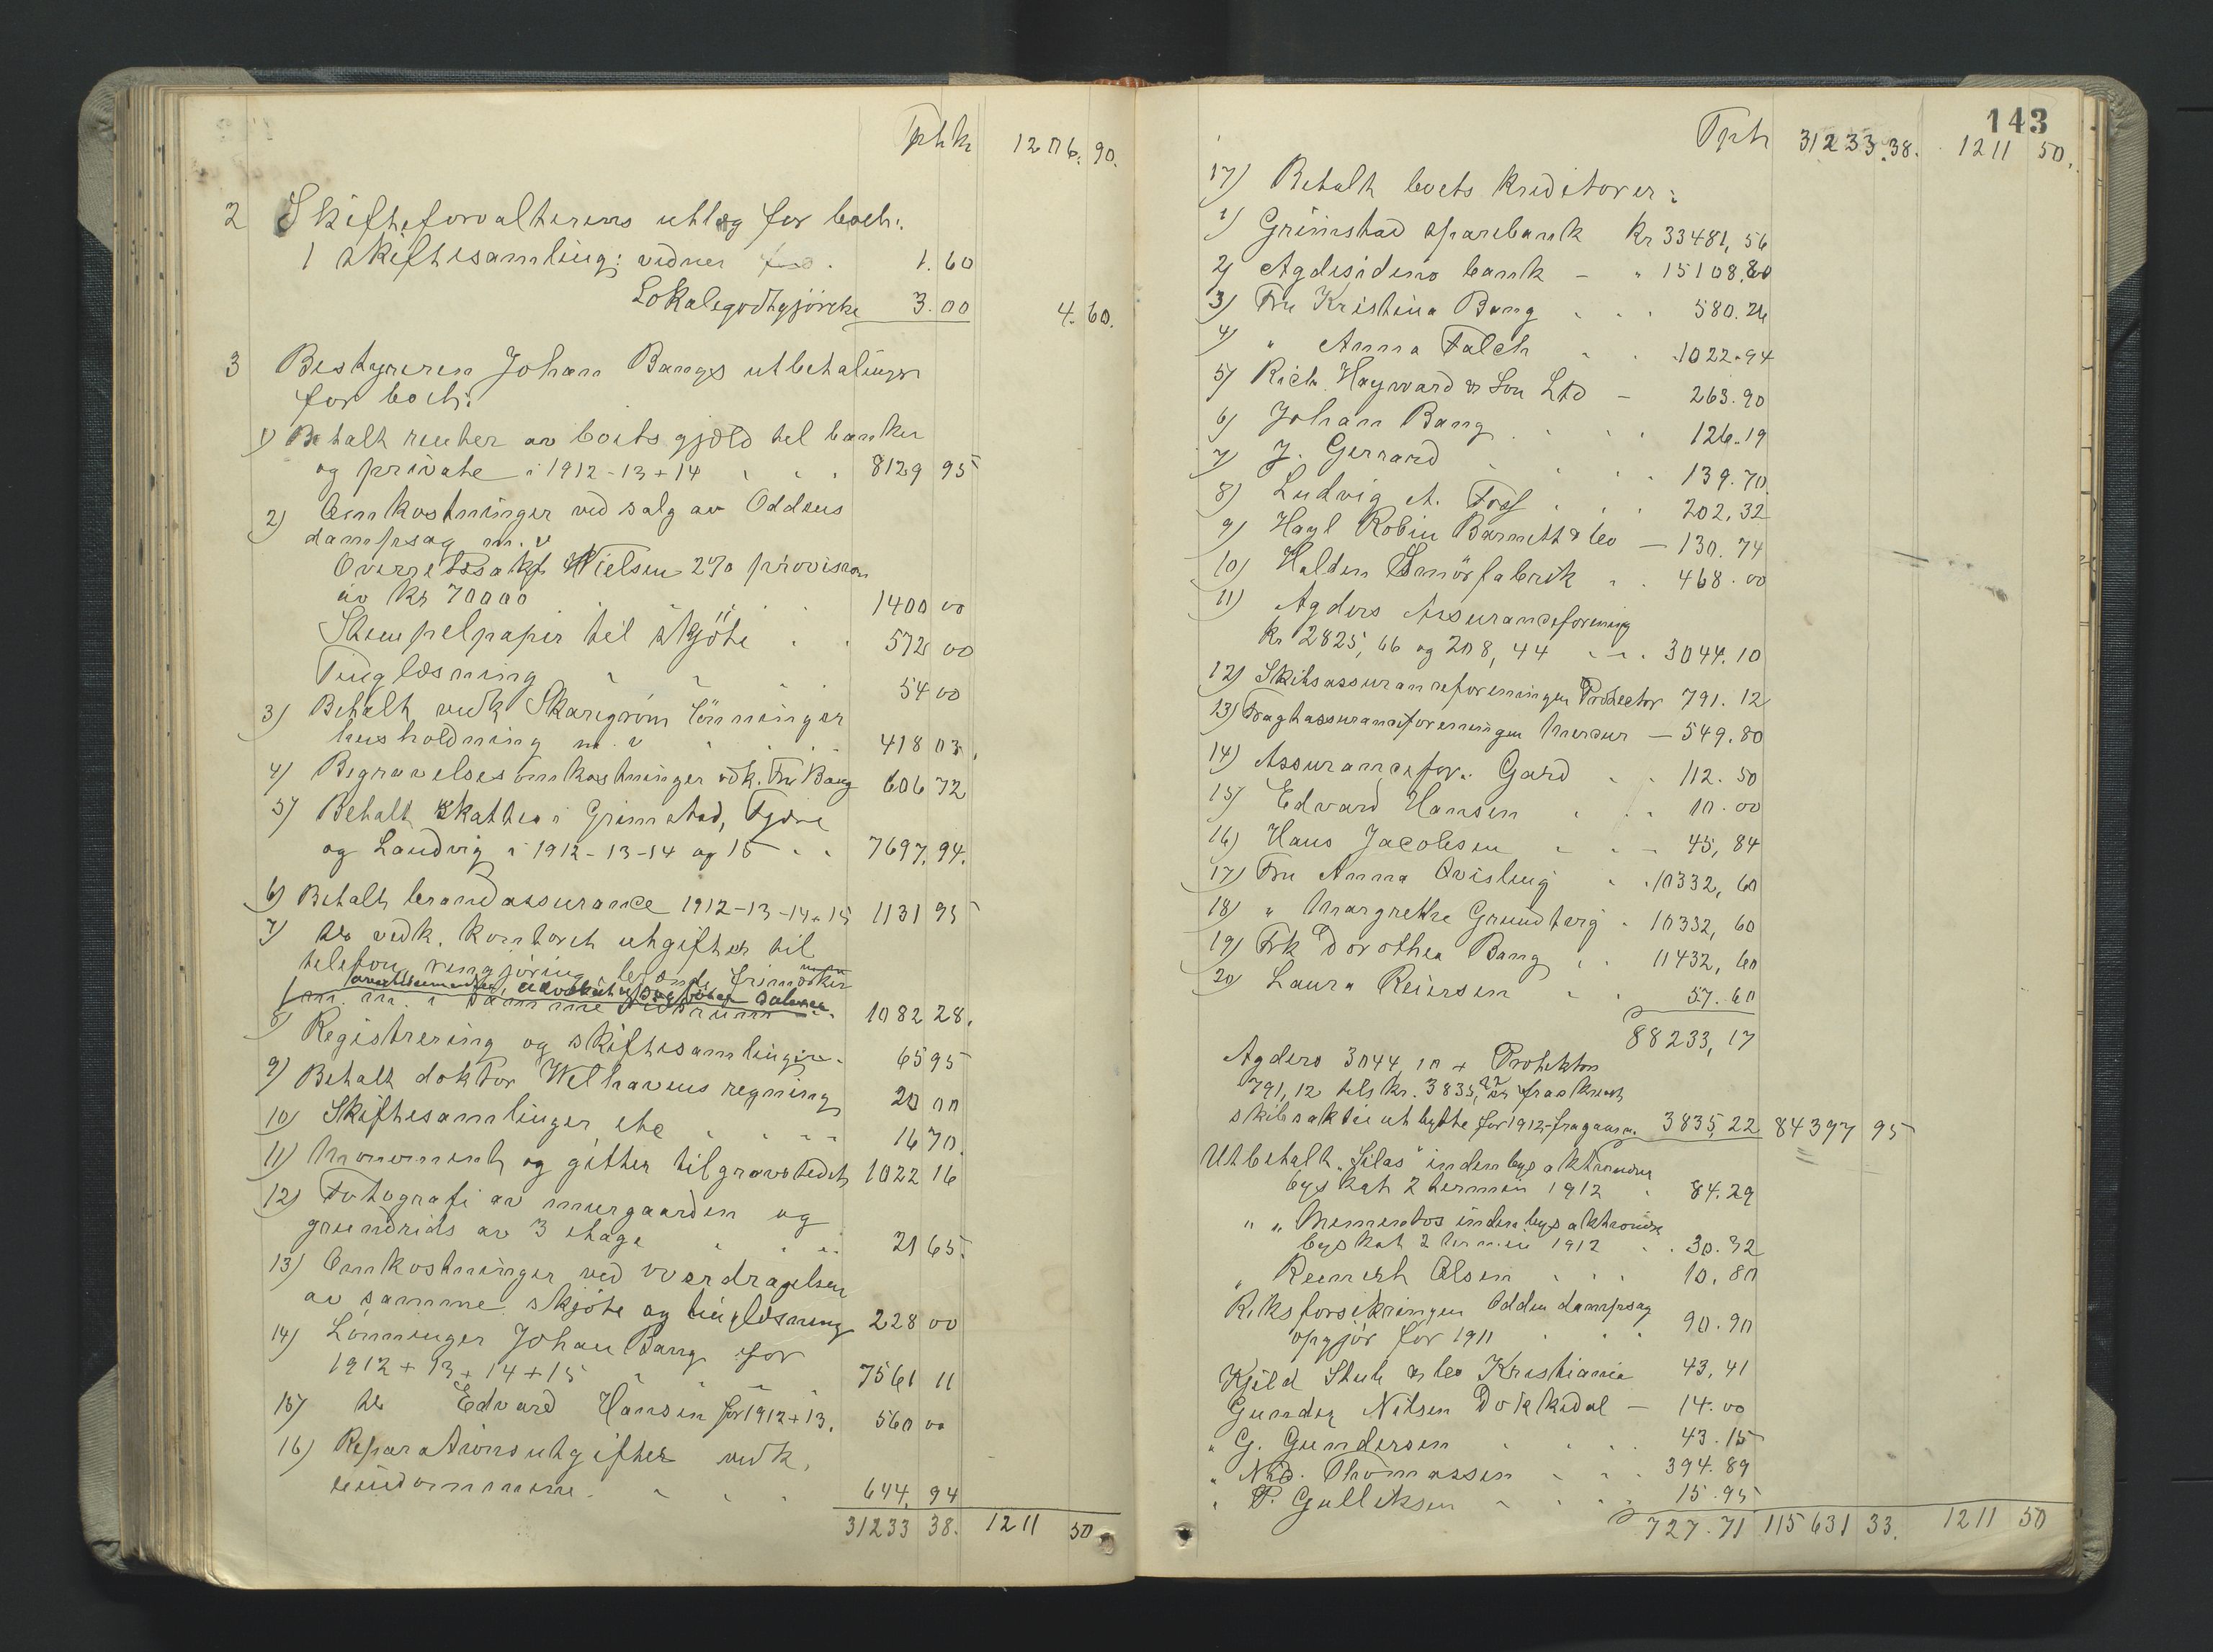 Tpt kr 1206. 90.
2 Skifteforvalterens utlæg for boet:
1 skiftesamling: vidner 1. 60
Lokalegodtgjörelse 3. 00 4. 60.
3 Bestyreren Johan Bangs utbetalinger
for boet:
1) Betalt renter av boets gjæld til banker
og private i 1912-13+14 8129 95
2) Omkostninger ved salg av Oddens
dampsag m. v
Overretssakf Nielsen 2% provision
av Kr 70000 1400 00
Stempelpapir til skjöte 572 00
Tinglæsning 54 00
3) Betalt vedk Skaregrøm lönninger
husholdning m. v 418 03.
4) Begravelsesomkostninger vdk. Fru Bang 606 72
5) Betalt skatter i Grimstad, Fjære
og Landvig i 1912-13-14 og 15 7697. 94.
6) Betalt brandassurance 1912-13-14+15 1131 95
7) do vedk. kontoret utgifter til
telefon rengjöring, brænde, frimærker
m. m. i samme tidsrum 1082 28.
8) Registrering og skiftesamlinger 65 95
9) Betalt doktor Welhavens regning 20 00
10) Skiftesamlinger etc 16 70.
11) Monument og gitter til gravstedet 1022 16
12) Fotografi av murgaarden og
grundrids av 3 etage 21 65.
13) Omkostninger ved overdragelsen
av samme skjöte og tinglæsning 228 00
14) Lönninger Johan Bang for
1912+13+14+15 7561 11
15) do Edvard Hansen for 1912+13. 560 00
16) Reparationsutgifter vedk.
eiendommene. 644. 94
31233 38. 1211 50
143
Tpt 31233.38. 1211 50.
17) Betalt boets kreditorer:
1) Grimstad sparebank Kr 33481, 56
2) Agdesidens bank - " 15108.80
3) Fru Kristina Bang 580. 26
4) " Anna Falch 1022. 94
5) Rich. Hayward & Son Ltd - 263. 90
6) Johan Bang 126. 19
7) J. Gerrard 139. 70.
8) Ludvig A. 202, 32
9) Hagl Robin Barnett & Co - 130. 74
10) Halden Smörfabrik 468. 00
11) Agders Assuranceforening
Kr 2825, 66 og 208, 44 3044. 10
12) Skibsassuranceforeningen Protector 791. 12
13) Fragtassuranceforeningen Mercur - 549. 80
14) Assurancefor. Gard 112. 50
15) Edvard Hansen 10. 00
16) Hans Jacobsen 45, 84
17) Fru Anna Qvisling 10332, 60
18) " Margrethe Grundberg 10332, 60
19) Frk Dorothea Bang 11432, 60
20) Laura Reiersen 57. 60
88233, 17
Agders 3044, 10 + Protektor
791, 12 tils kr. 3835, 22 fraskrevet
skibsaktieutbytte for 1912 fragaar 3835, 22 84397 95
Utbetalt "Silas" indenbys aktionærer
byskat 2 termin 1912 84. 29
" " Mementos indenbys aktionærer
byskat 2 termin 1912 30. 32
" Reinert Olsen 10. 80
Riksforsikringen Odden dampsag
opgjör for 1911 90. 90
Kjeld Stub & Co Kristiania 43, 41
Gunder Nilsen Dokkedal - 14. 00
" G. Gundersen 43. 15
" Nic. Thomassen 394. 89
" P. Gulliksen 15. 95
727. 71 115631 33. 1211 50